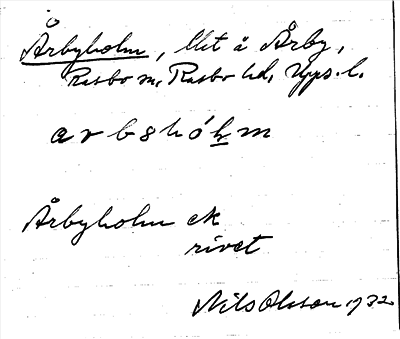 Årbyholm, llet å Årby,
Rasbo sn, Rasbo hd, Upps. l.
a r b s h ó l m
Årbyholm ek
rivet
Nils Olsson 1932